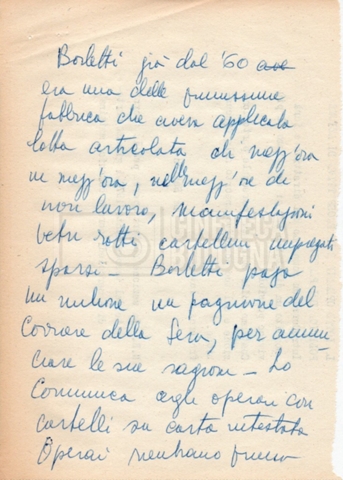 Borletti già dal '60 ave
era una delle primissime
fabbrica che aveva applicata
lotta articolata di mezz'ora
in mezz'ora, nelle mezz'ore di
non lavoro, manifestazioni
vetri rotti cartellini impiegati
sparsi - Borletti paga
un milione un paginone del
Corriere della Sera, per annun
ciare le sue ragioni - Lo
Comunica agli operai con
cartelli su carta intestata
Operai rientrano
CINETECA
BOLOGNA